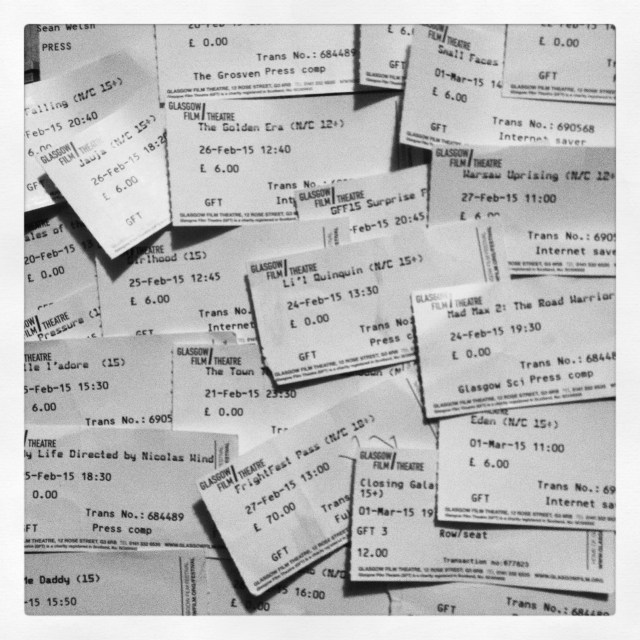 Sean Welsh
PRESS
£ 0.00
Trans No.: 684489
The Grosven Press comp
GLASGOW FILM THEATRE, 12 ROSE STREET, G3 6RB
£ 6.
Small Faces
01-Mar-15 14
£ 6.00
Trans No.: 690568
Internet saver
£ 0.00
GFT
alling (N/C 15+)
Feb-15 20:40
GLASGOW
FILM THEATRE
26-Feb-15 18:2
£ 6.00
GFT
GLASGOW
FILM THEATRE
The Golden Era (N/C 12+)
26-Feb-15 12:40
£ 6.00
Trans No
GFT
Int
GLASGOW FILM THEATRE, 12 ROSE STREET, G3 6RB
GLASGOW
FILM THEATRE
GFF15 Surprise F
-Feb-15 20:45
GLASGOW
FILM THEATRE
Warsaw Uprising (N/C 12+
27-Feb-15 11:00
£ 6.00
Trans No.: 690
Internet save
les of
20-Feb-15
£ 0.00
irlhood (15)
25-Feb-15 12:45
£ 6.00
GFT
Internet
GLASGOW
FILM THEATRE
Li'l Quinquin (N/C 15+)
24-Feb-15 13:30
£ 0.00
Trans No
GFT
Press c
GLASGOW FILM THEATRE, 12 ROSE STREET, G3 6RB
GLASGOW
FILM THEATRE
Mad Max 2: The Road Warrior
24-Feb-15 19:30
£ 0.00
Trans No.: 6844
Glasgow Sci Press comp
Pressure (1
THEATRE
lle l'adore (15)
5-Feb-15 15:30
6.00
Trans No.: 6905
GLASGOW
FILM THEATRE
The Town T
21-Feb-15 23:30
£ 0.00
THEATRE
y Life Directed by Nicolas Wind
5-Feb-15 18:30
0.00
Trans No.: 684489
GFT
Press comp
GLASGOW FILM THEATRE, 12 ROSE STREET, G3 6RB
GLASGOW
FILM THEATRE
FrightFest Pass (N/C 18+)
27-Feb-15 13:00
£ 70.00
Trans
GFT
Ful
GLASGOW
FILM THEATRE
Closing Gala
15+)
01-Mar-15 19
GFT 3
12.00
Row/seat
Transaction no:677625
GLASGOW FILM THEATRE, 12 ROSE STREET, G3 6RB
WWW.GLASGOWFILM.ORG
Eden (N/C 15+)
01-Mar-15 11:00
£ 6.00
Trans No.: 69
GFT
Internet sa
e Daddy (15)
-15 15:50
16:00
GFT
Trans No.: 6